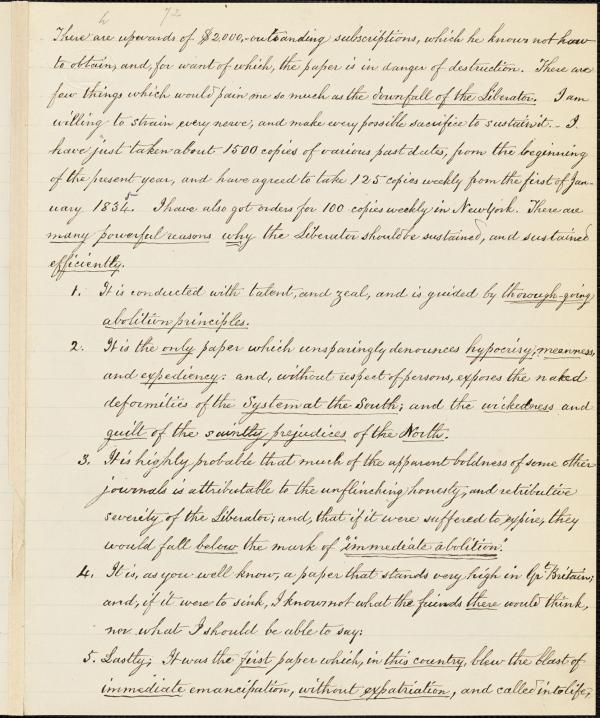 h 72
There are upwards of $2,000,-outstanding subscriptions, which he knows not how
to obtain, and, for want of which, the paper is in danger of destruction. There are
few things which would pain me so much as the downfall of the Liberator. I am
willing to strain every nerve, and make every possible sacrifice to sustain it. - I
have just taken about 1500 copies of various past dates, from the beginning
of the present year, and have agreed to take 125 copies weekly from the first of Jan-
uary 1835. I have also got orders for 100 copies weekly in New York. There are
many powerful reasons why the Liberator should be sustained, and sustained
efficiently.
1. It is conducted with talent, and zeal, and is guided by thorough-going
abolition principles.
2. It is the only paper which unsparingly denounces hypocrisy, meanness,
and expediency: and, without respect of persons, exposes the naked
deformities of the System at the South; and the wickedness and
guilt of the saintly prejudices of the North.
3. It is highly probable that much of the apparent boldness of some other
journals is attributable to the unflinching honesty, and retributive
severity of the Liberator; and, that if it were suffered to expire, they
would fall below the mark of "immediate abolition".
4. It is, as you well know, a paper that stands very high in Grt Britain;
and, if it were to sink, I know not what the friends there would think,
nor what I should be able to say:
5. Lastly; It was the first paper which, in this country, blew the blast of
immediate emancipation, without expatriation, and called into life,